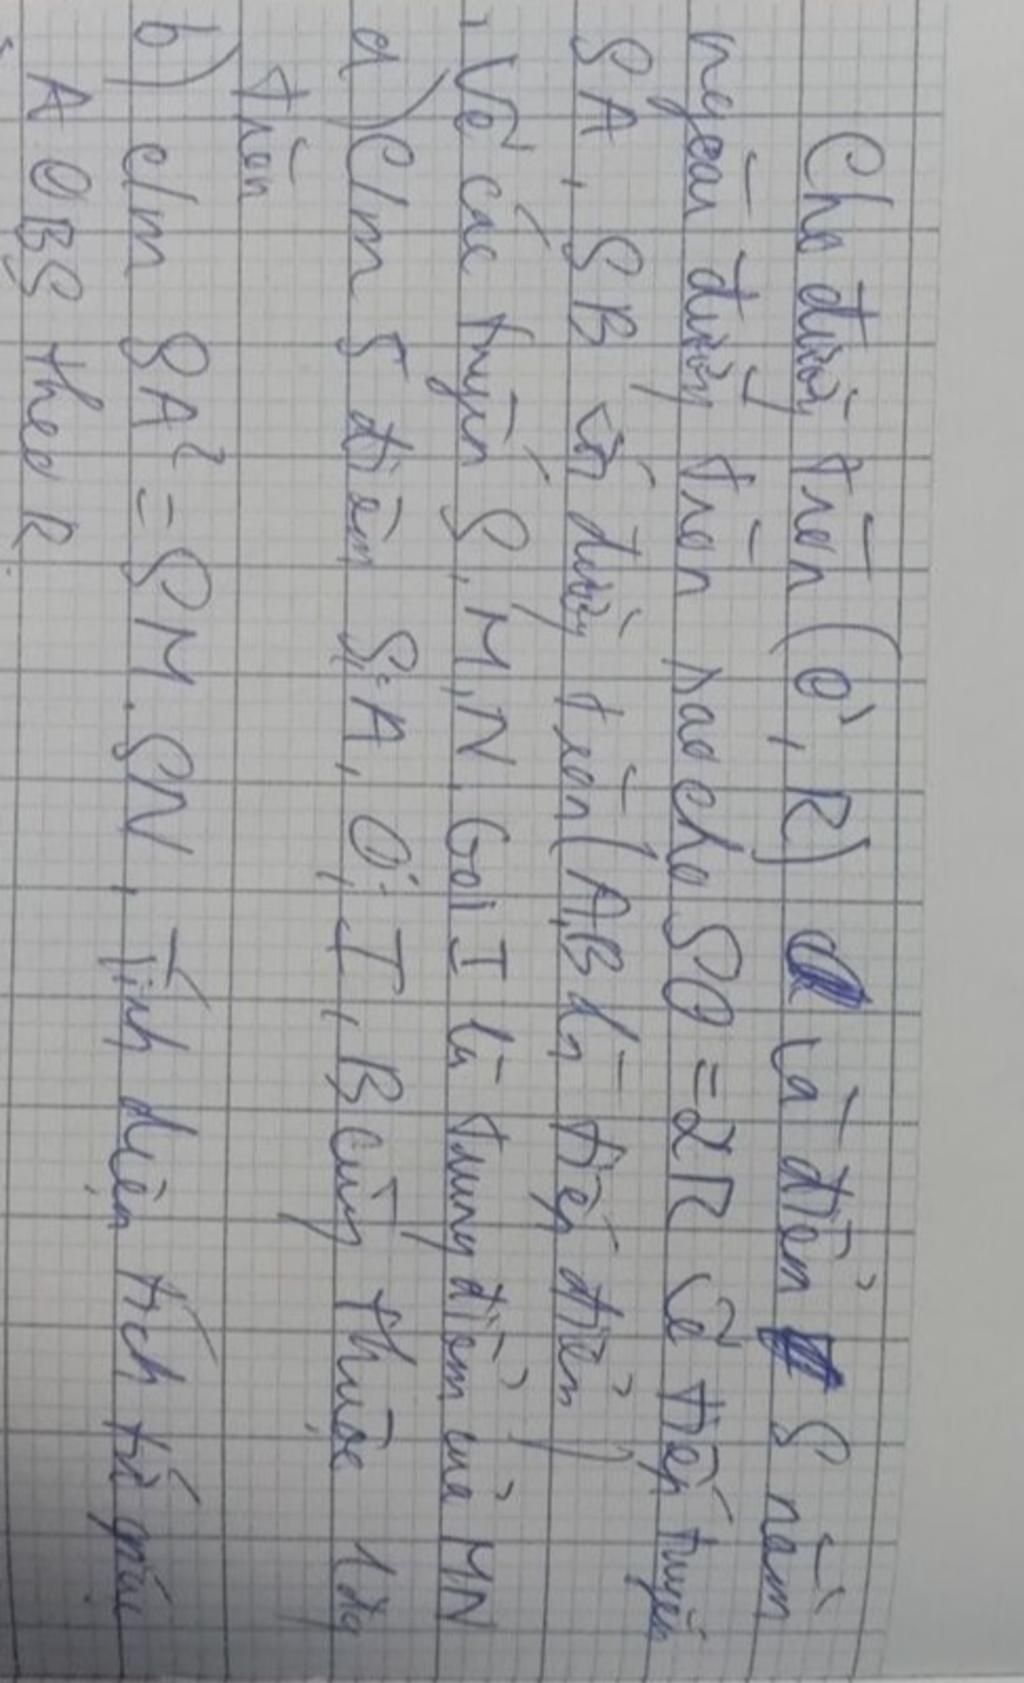 Cho đường tròn (O, R) là điểm S nằm
ngoài đường tròn sao cho SO = 2R vẽ tiếp tuyến
SA, SB với đường tròn (A,B là tiếp điểm)
, Vẽ cát tuyến S,M,N. Gọi I là trung điểm của MN
a) C/m 5 điểm S,A,O,I,B cùng thuộc 1 đg
tròn
b) c/m SA² = SM.SN, Tính diện tích tứ giác
AOBS theo R